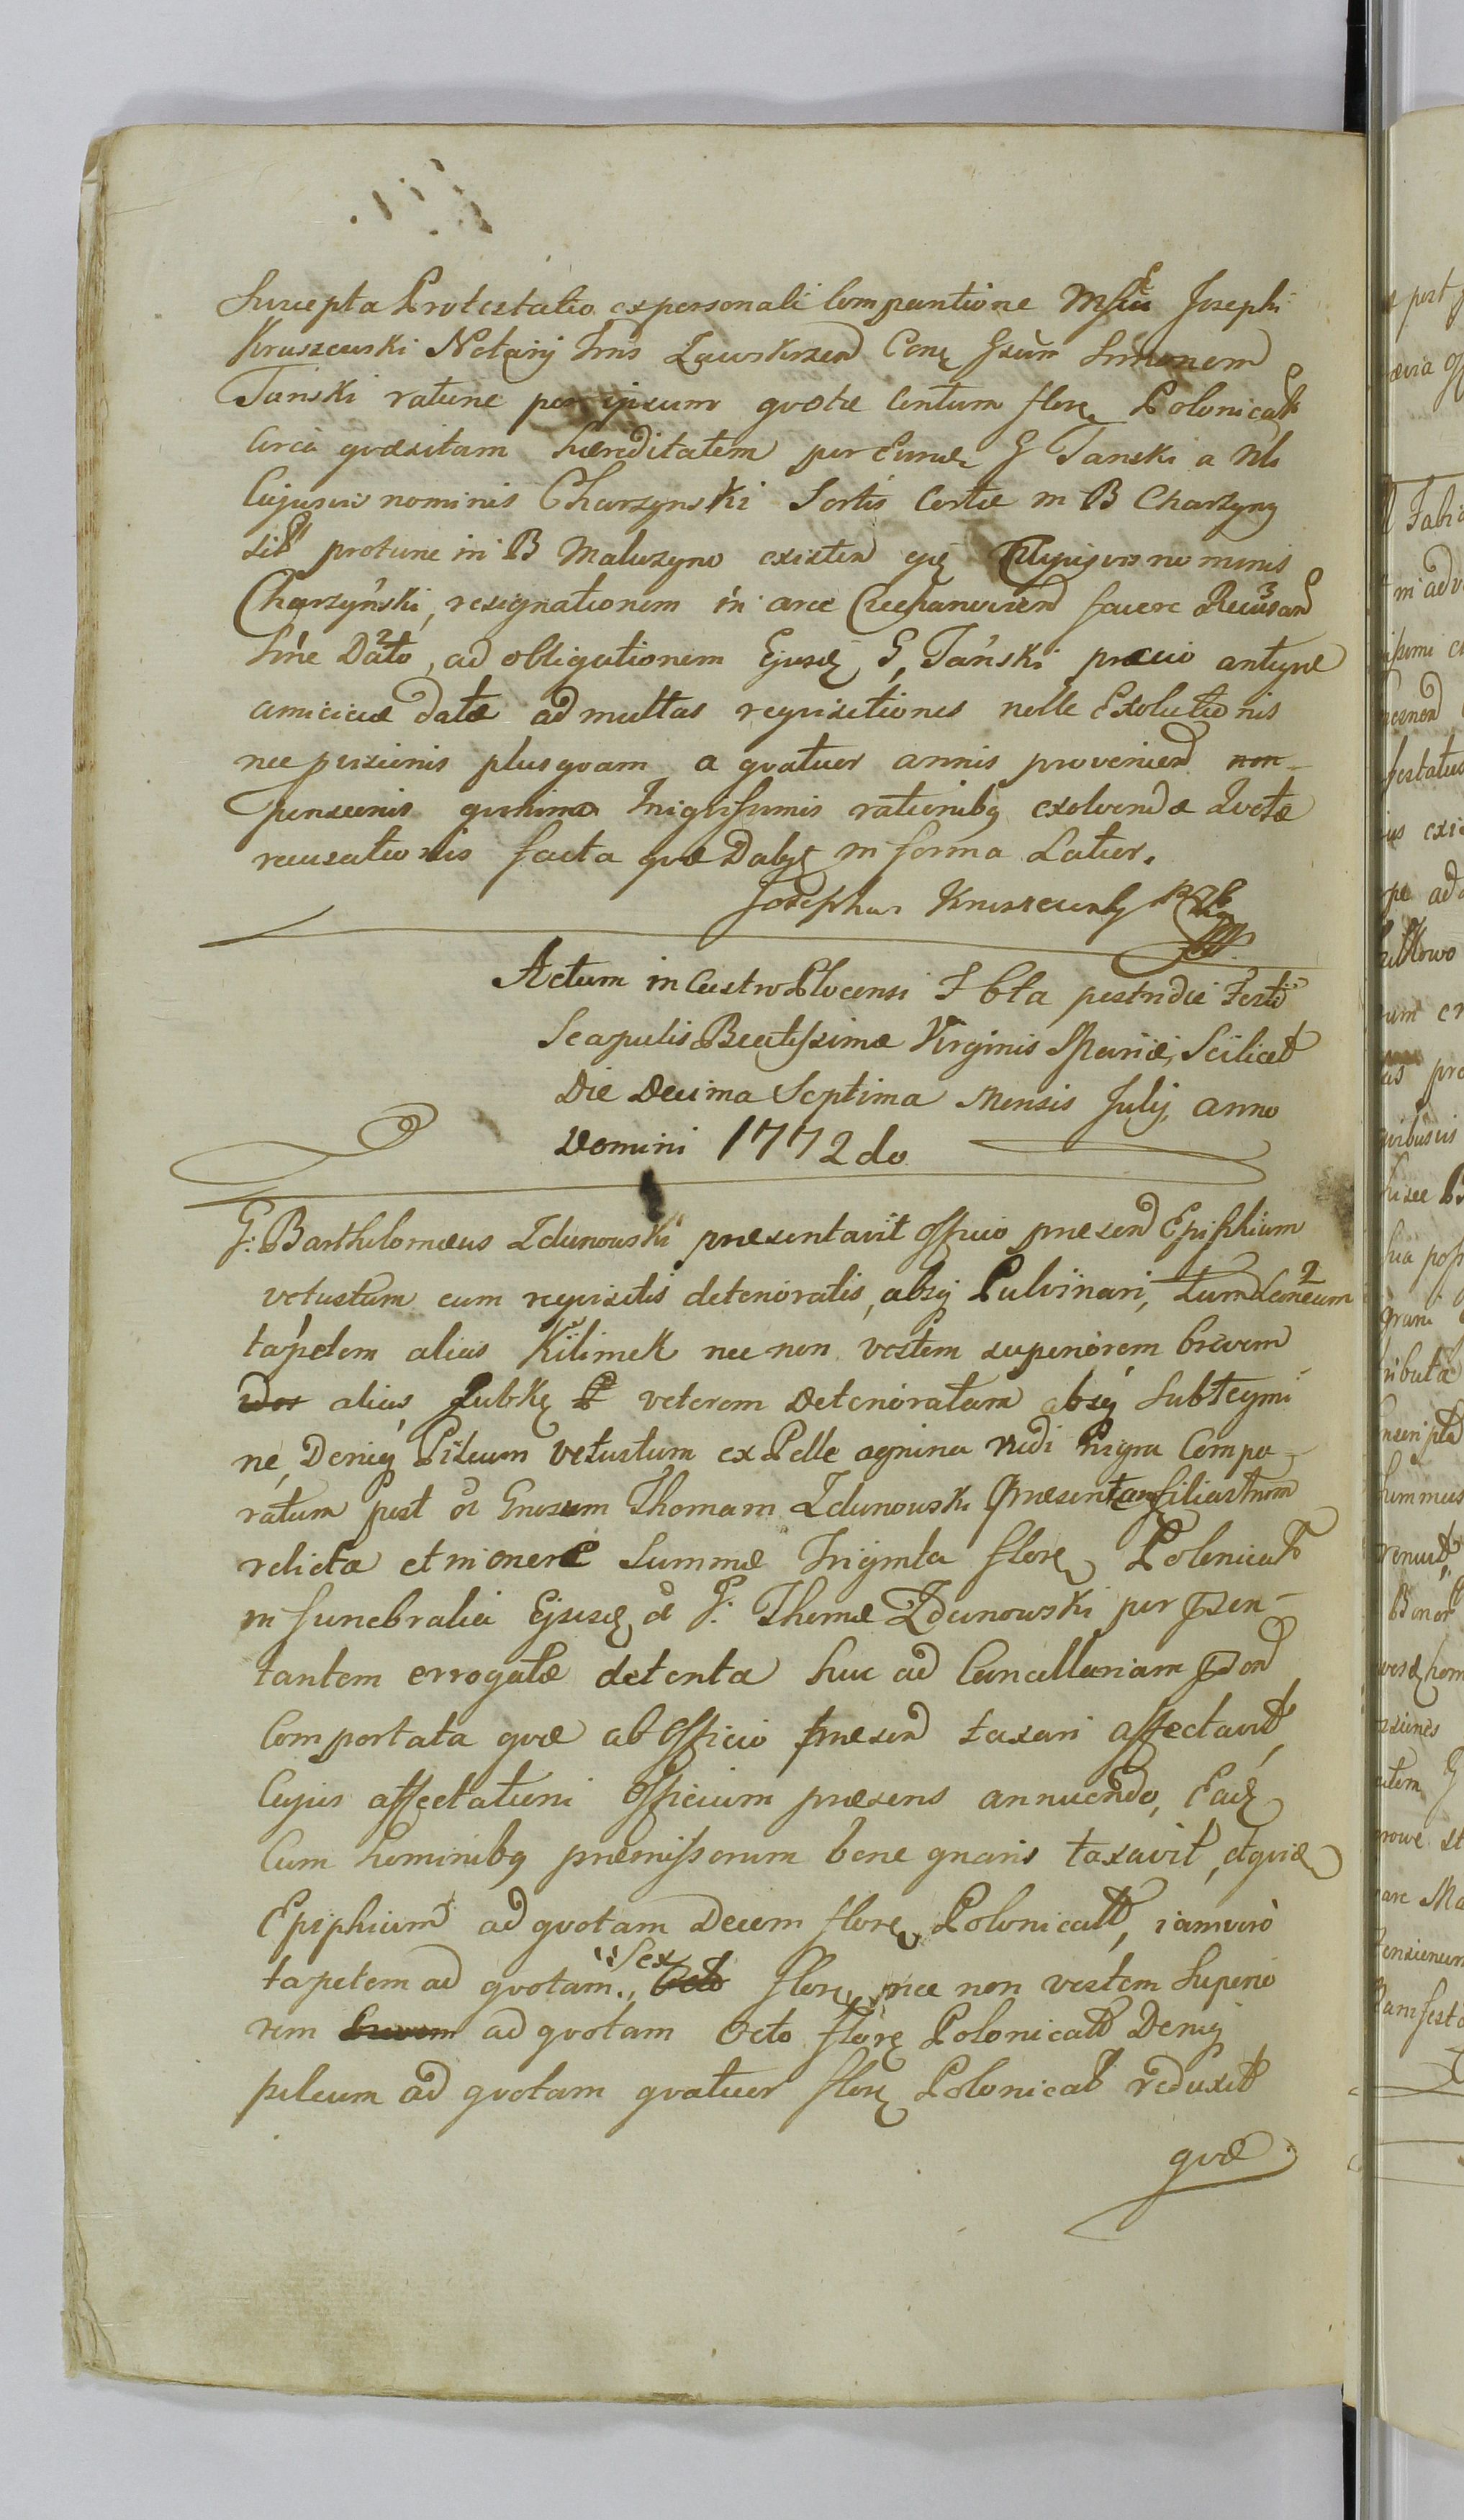 Suscepta Protestatio ex personali Comparitione Mfici Josephi
Kruszewski Notarij Trris Zawskrzen Conq Gsum Simonem
Tański ratione per ipsum quotæ Centum floreq Polonicalt
Circa quæsitam hæreditatem per Eunde G Tanski a Nli
Cujusvis nominis Charzynski Sortis Certæ in B Charzyny
sit protunc in B Maluzyno existen ejq Cujusvis nominis
Charzyński, resignationem in arce Ciechanoviend facere Recusand
Sine Dato, ad obligationem Ejusdę G, Tański præcio antiquæ
amiciciæ datæ ad multas requisitiones nolle Exolutionis
nec pensionis plusquam a quatuor annis proveniend non-
pensionis quinimo Iniquissimis rationibq exolvendæ Quotæ
recusationis facta quæ Dabit in forma Latior.
Josephus Kruszewski
Actum in Castro Plocensi Fria 6ta postridie Festi
Scapulis Beatissimæ Virginis Mariæ, Scilicet
Die Decima Septima Mensis Julij, anno
Domini 1772do
G: Barthelomæus Zdunowski præsentavit officio præsend Ephiphium
vetustum cum requisitis deterioratis, absq Pulvinari, Tum Laneum
tapetem alias Kilimek nec non vestem superiorem brevem
alias Jubkę veterem deterioratam absq Subtegmi
ne, Deniq Pileum vetustum ex Pelle agnina rudi nigra Compa-
ratum post ol Gnosum Thomam Zdunowski Præsentan filiastrum
relicta et in onere Summæ Triginta floreq Polonicalt
in funebralia Ejusdę ol G: Thomæ Zdunowski per Psen-
tantem errogatæ detenta huc ad Cancellariam Psend
Comportata quæ ab Officio præsend taxari affectavit,
Cujus affectationi Officium præsens annuendo, Eadę
Cum hominibq præmissorum bene gnaris taxavit, et quidę
Epiphium ad quotam Decem floreq Polonicalt, iamvero
tapetem ad quotam Sex Octo floreq nec non vestem Superio
rem brevem ad quotam Octo floreq Polonicalt Deniq
pileum ad quotam quatuor floreq Polonicalt reduxit
quæ